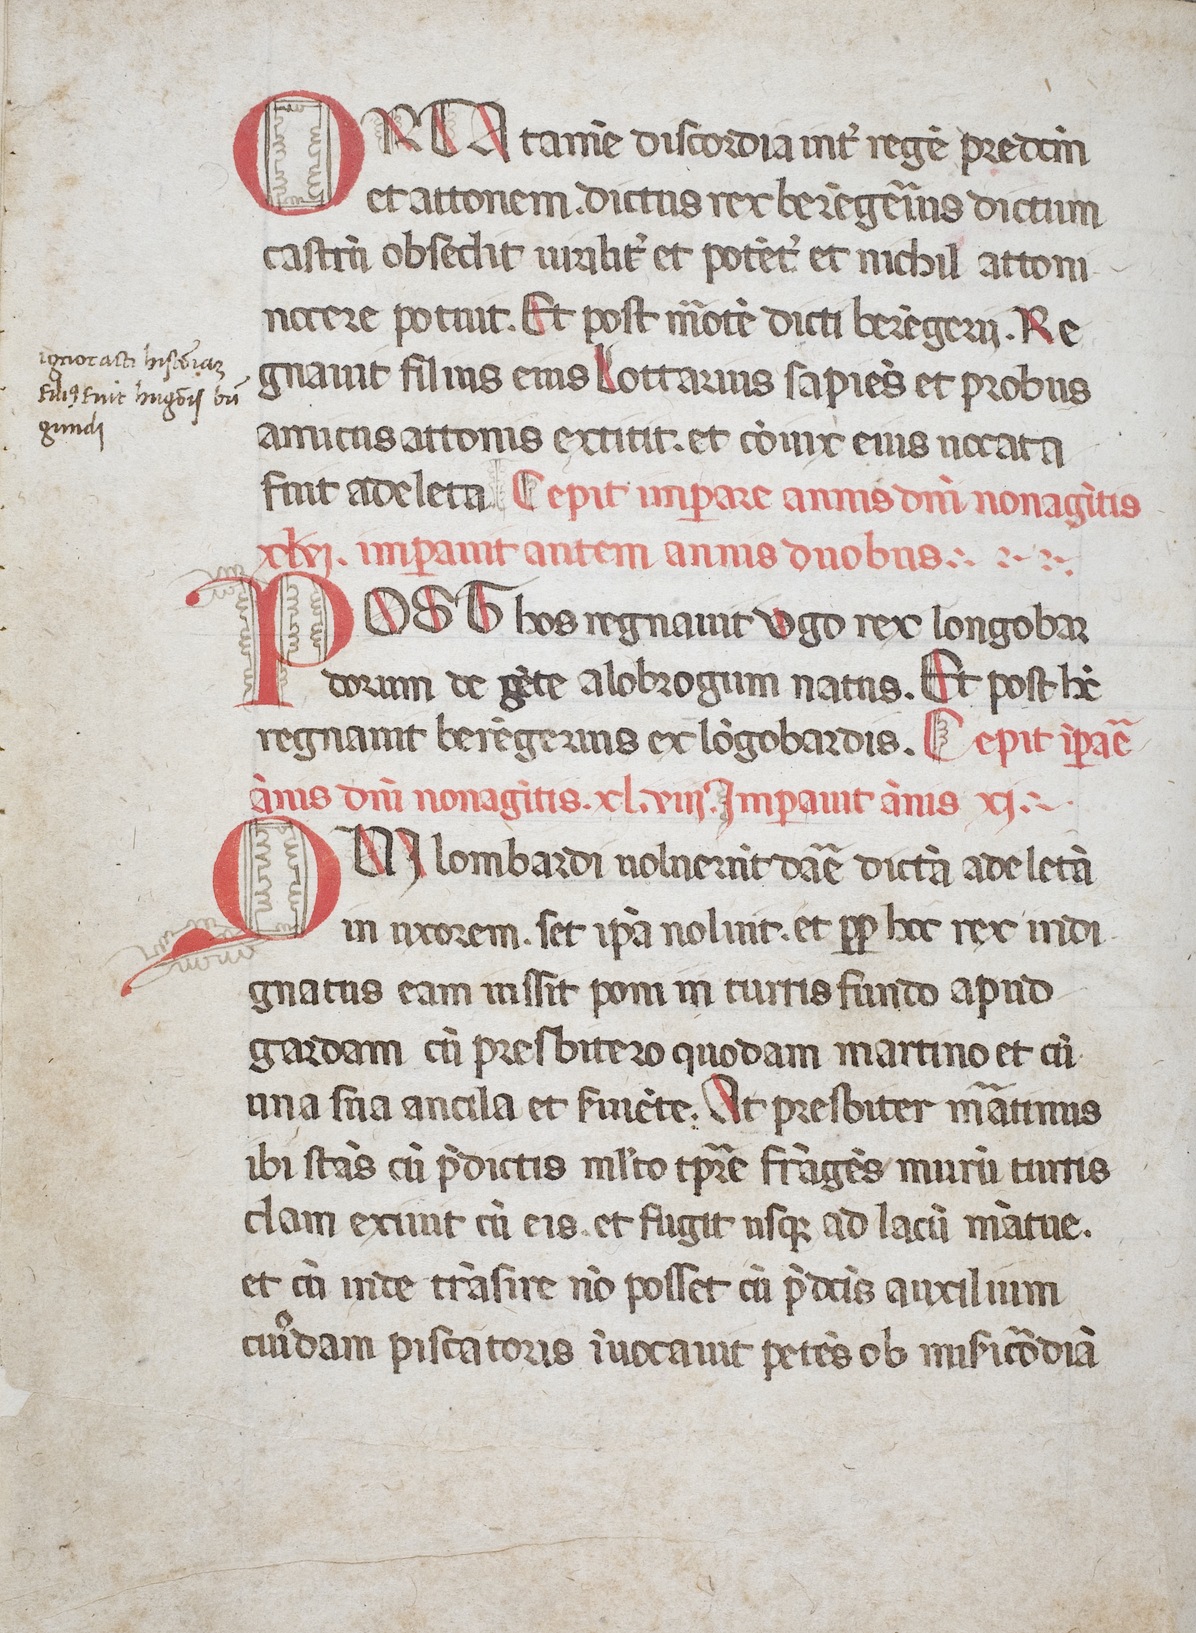 ORTA tam̄e discordia int̛ regē predc̄m
et attonem. dictus rex berēgeri̅us dictum
castrū obsedit uirilit̛ et potēt̛ et nichil attoni
nocere potuit. Et post m̅otē dicti berēgerij. Re
gnauit filius eius Lottarius sapiēs et probus
amicus attonis extitit. et cōiux eius uocata
fuit adeleta Cepit imꝑare annis dn̄i nonagītis
xlvj. imꝑauit autem annis duobus
ignorasti historiaꝝ
filiꝰ fuit hugōis bū
gundi
POST hos regnauit vgo rex longobar
dorum de gēte alobrogum natus. Et post hē
regnauit berēgerius ex lōgobardis. Cepit īꝑae̅
ānis dn̄i nonagītis. xl. viij. Imꝑauit ānis xj.
OMNJ lombardi uoluerūt dāe dictā adeletā
in uxorem. set ip̄a noluit. et ꝓꝑ hoc rex indi
gnatus eam iussit poni in turris fundo apud
gardam cū presbitero quodam martino et cū
una sua ancila et seruiēte. At presbiter m̅atinus
ibi stās cū p̄dictis ml̛to tp̄re frāgēs murū turris
clam exiuit cū eis. et fugit usqꝫ ad lacū mātue.
et cū inde trāsire nō posset cū p̄dcīs auxilium
cuiꝰdam piscatoris īuocauit petēs ob misicōdiā